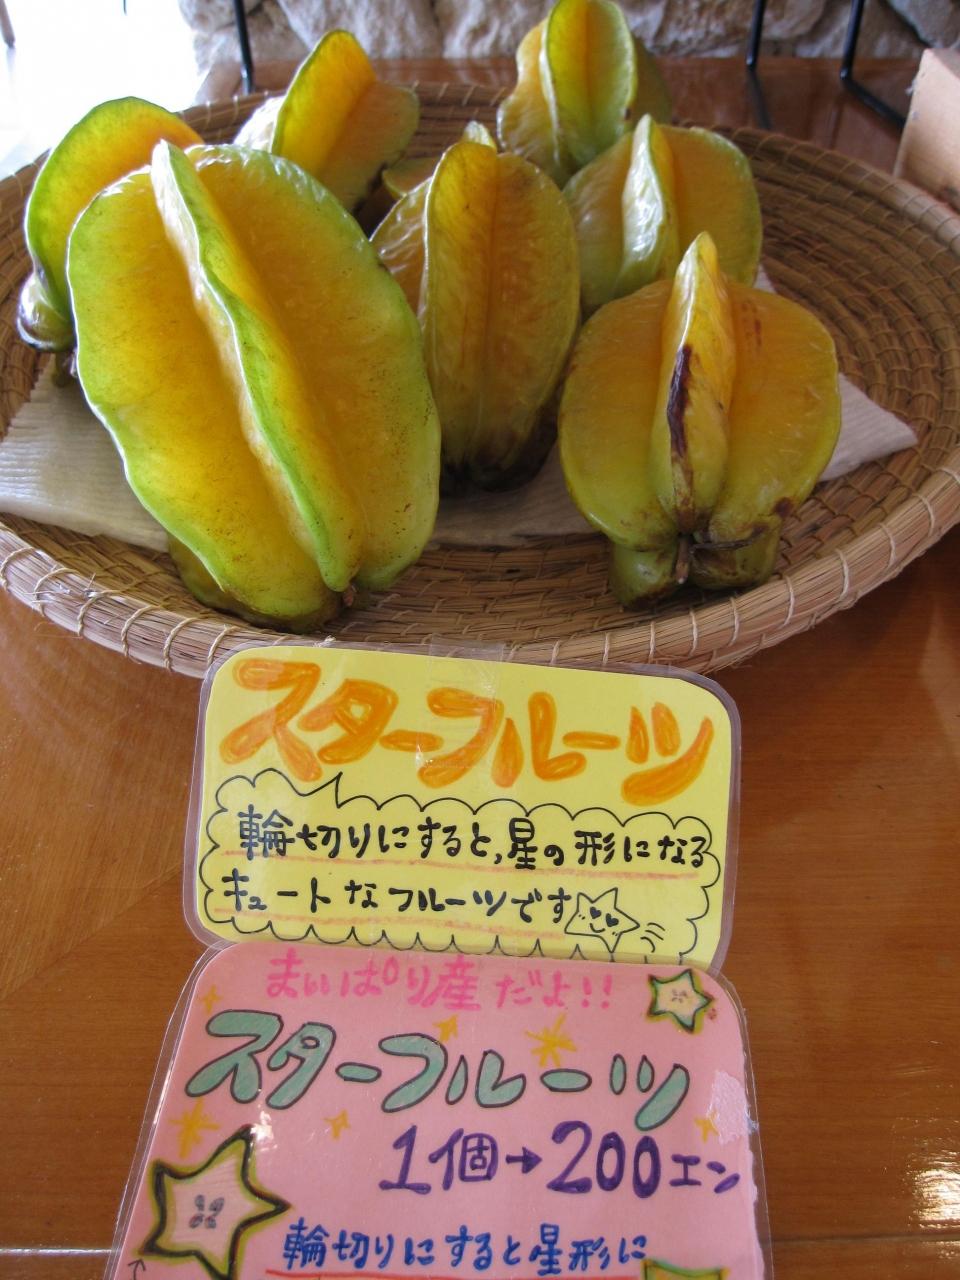 スターフルーツ
輪切りにすると,星の形になる
キュートなフルーツです
まいぱり産だよ!!
スターフルーツ
1個→200エン
輪切りにすると星形に